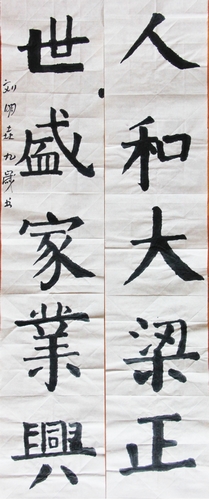 人和大梁正
世盛家業興
刘明垚九岁书